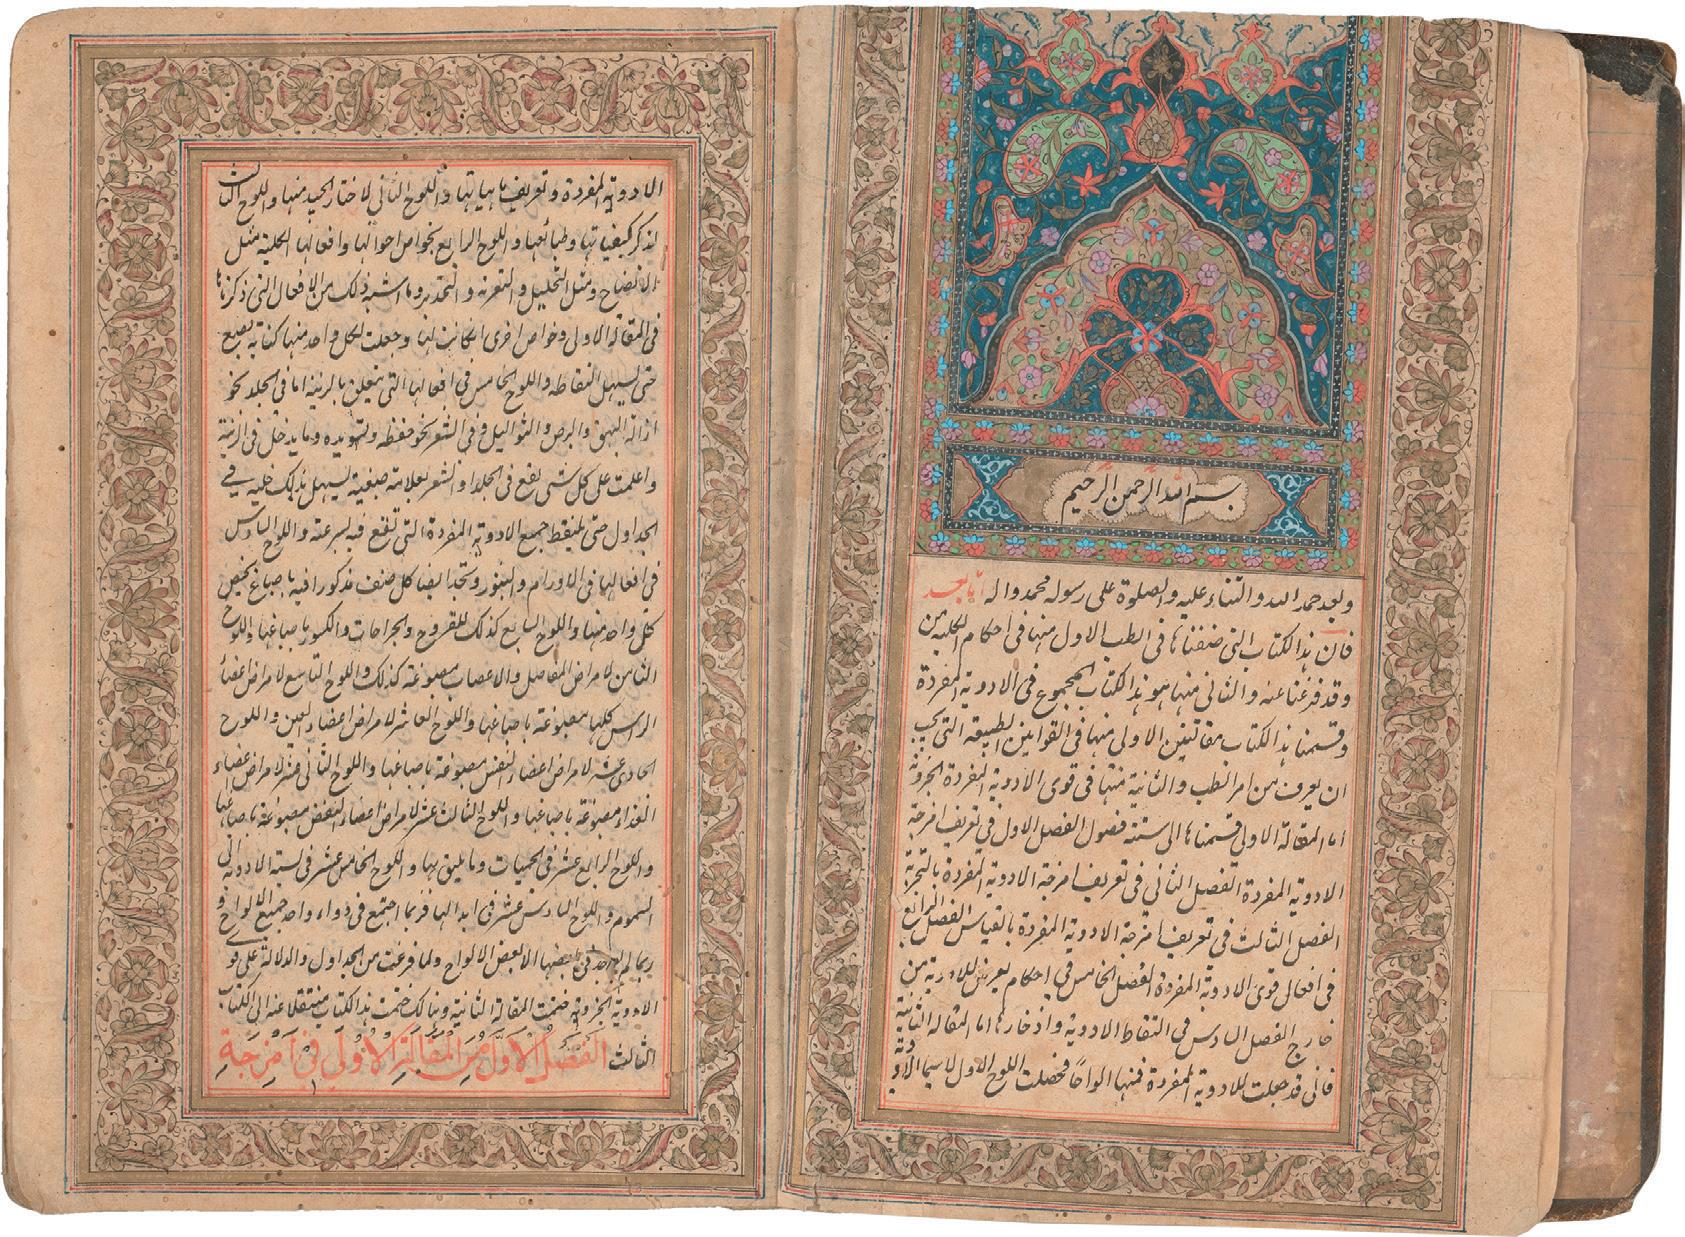 بسم الله الرحمن الرحيم
وبعد حمد الله والثناء عليه والصلوة على رسوله محمد واله اما بعد
فان هذا الكتاب التى صنفناها فى الطب الاول منها فى احكام الكلية من
وقد فرغنا عنه والثانى منها هو هذا الكتاب المجموع فى الادوية المفردة
وقسمنا هذا الكتاب مقالتين الاولى منها فى القوانين الطبيقه التى يجب
ان يعرف من امر الطب والثانية منها فى قوى الادوية المفردة الجزوية
اما المقالة الاولى قسمناها الى ستة فصول الفصل الاول فى تعريف امزجة
الادوية المفردة الفصل الثانى فى تعريف امزجة الادوية المفردة بالتجربة
الفصل الثالث فى تعريف امزجة الادوية المفردة بالقياس الفصل الرابع
فى افعال قوى الادوية المفردة الفصل الخامس فى احكام يعرض للادوية من
خارج الفصل السادس فى التقاط الادوية واذخارها اما المقالة الثانية
فانى قد جعلت للادوية المفردة فمنها الواحا فحصلت اللوح الاول لاسما الادوية
الادوية المفردة وتعريف ماهياتها واللوح الثانى لاختار الجيد منها واللوح الثالث
لذكر كيفياتها وطبائعها واللوح الرابع لخواص احوالها وافعالها الكلية مثل
الانضاج ومثل التحليل والتغرية والتخدير وما اشبه ذلك من الافعال التى ذكرناها
فى المقالة الاولى وخواص اخرى ان كانت لها وجعلت لكل واحد منها كتابة بصبغ
حتى يسهل التقاطه واللوح الخامس فى افعالها التى يتعلق بالزينة اما فى الجلد نحو
ازالة البهق والبرص والثواليل وفى الشعر نحو حفظه وتسويده وما يدخل فى الزينة
واعلمت على كل شى يقع فى الجلد او الشعر بعلامة صبغية ليسهل بذلك طلبه فى
الجداول حتى يلتقط جميع الادوية المفردة التى تنفع فيه بسرعة واللوح السادس
فى افعالها فى الاورام والبثور وستجد ايضا كل صنف مذكورا فيه باصباغ يخص
كل واحد منها واللوح السابع كذلك للقروح والجراحات والكسور باصباغها واللوح
الثامن لامراض المفاصل والاعصاب مصبوغة كذلك واللوح التاسع لامراض اعضا
الراس كلها مصبوغة باصباغها واللوح العاشر لامراض اعضاء العين واللوح
الحادى عشر لامراض اعضاء النفس مصبوغة باصباغها واللوح الثانى عشر لامراض اعضاء
الغذاء مصبوغة باصباغها واللوح الثالث عشر لامراض اعضاء النفض مصبوغة باصباغها
واللوح الرابع عشر فى الحميات وما يليق بها واللوح الخامس عشر فى نسبة الادوية الى
السموم واللوح السادس عشر فى ابدالها فربما اجتمع فى دواء واحد جميع الالواح و
ربما لم يوجد فى بعضها الا بعض الالواح ولما فرغت من الجداول والدلالة على قوى
الادوية الجزوية ختمت المقالة الثانية وهنالك ختمت هذا الكتاب منتقلا عنه الى الكتاب
الثالث الفصل الاول من المقالة الاولى فى امزجة